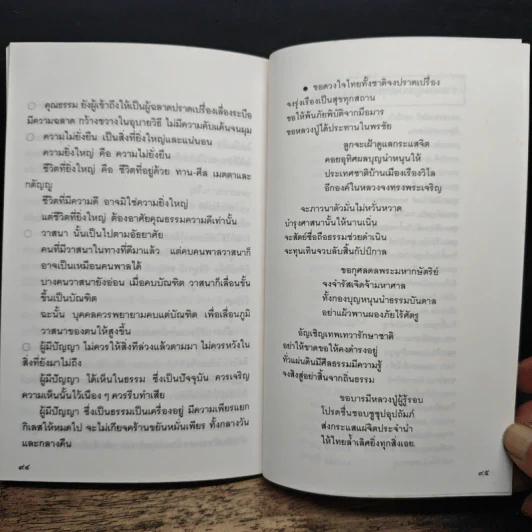 ○ คุณธรรม ยังผู้เข้าถึงให้เป็นผู้ฉลาดปราดเปรื่องเลื่องระบือ
มีความฉลาด กว้างขวางในอุบายวิธี ไม่มีความคับแค้นจนมุม
○ ความไม่ยั่งยืน เป็นสิ่งที่ยิ่งใหญ่และแน่นอน
ความยิ่งใหญ่ คือ ความไม่ยั่งยืน
ชีวิตที่ยิ่งใหญ่ คือ ชีวิตที่อยู่ด้วย ทาน-ศีล เมตตาและ
กตัญญู
ชีวิตที่มีความดี อาจมิใช่ความยิ่งใหญ่
แต่ชีวิตที่ยิ่งใหญ่ ต้องอาศัยคุณธรรมความดีเท่านั้น
○ วาสนา นั้นเป็นไปตามอัธยาศัย
คนที่มีวาสนาในทางที่ดีมาแล้ว แต่คบคนพาลวาสนาก็
อาจเป็นเหมือนคนพาลได้
บางคนวาสนายังอ่อน เมื่อคบบัณฑิต วาสนาก็เลื่อนขั้น
ขึ้นเป็นบัณฑิต
ฉะนั้น บุคคลควรพยายามคบแต่บัณฑิต เพื่อเลื่อนภูมิ
วาสนาของตนให้สูงขึ้น
○ ผู้มีปัญญา ไม่ควรให้สิ่งที่ล่วงแล้วตามมา ไม่ควรหวังใน
สิ่งที่ยังมาไม่ถึง
ผู้มีปัญญา ได้เห็นในธรรม ซึ่งเป็นปัจจุบัน ควรเจริญ
ความเห็นนั้นไว้เนือง ๆ ควรรีบทำเสีย
ผู้มีปัญญา ซึ่งเป็นธรรมเป็นเครื่องอยู่ มีความเพียรแยก
กิเลสให้หมดไป จะไม่เกียจคร้านขยันหมั่นเพียร ทั้งกลางวัน
และกลางคืน
๙๔
● ขอดวงใจไทยทั้งชาติจงปราดเปรื่อง
จงรุ่งเรืองเป็นสุขทุกสถาน
ขอให้พ้นภัยพิบัติจากมือมาร
ขอหลวงปู่ได้ประทานในพรชัย
ลูกจะเฝ้าดูแลกระแสจิต
คอยอุทิศผลบุญนำหนุนให้
ประเทศชาติบ้านเมืองเรืองวิไล
อีกองค์ในหลวงจงทรงพระเจริญ
จะภาวนาตัวมั่นไม่หวั่นหวาด
บำรุงศาสนานั้นให้นานเนิ่น
จะสัตย์ซื่อถือธรรมช่วยดำเนิน
จะทุนเทินจวบลับสิ้นกัปป์กาล
ขอกุศลดลพระมหากษัตริย์
จงจำรัสเจิดจ้ามหาศาล
ทั้งกองบุญหนุนนำธรรมบันดาล
อย่าแผ้วพานผองภัยไร้ศัตรู
อัญเชิญเทพเทวารักษาชาติ
อย่าให้ขาดขอให้คงดำรงอยู่
ทั่วแผ่นดินมีศีลธรรมมีความรู้
จงสิงสู่อย่าสิ้นจากถิ่นธรรม
ขอบารมีหลวงปู่ผู้รู้รอบ
โปรดชื่นชอบชูชุปอุปถัมภ์
ส่งกระแสแผ่จิตประจำนำ
ให้ไทยล้ำเลิศยิ่งทุกสิ่งเอย.
๙๕